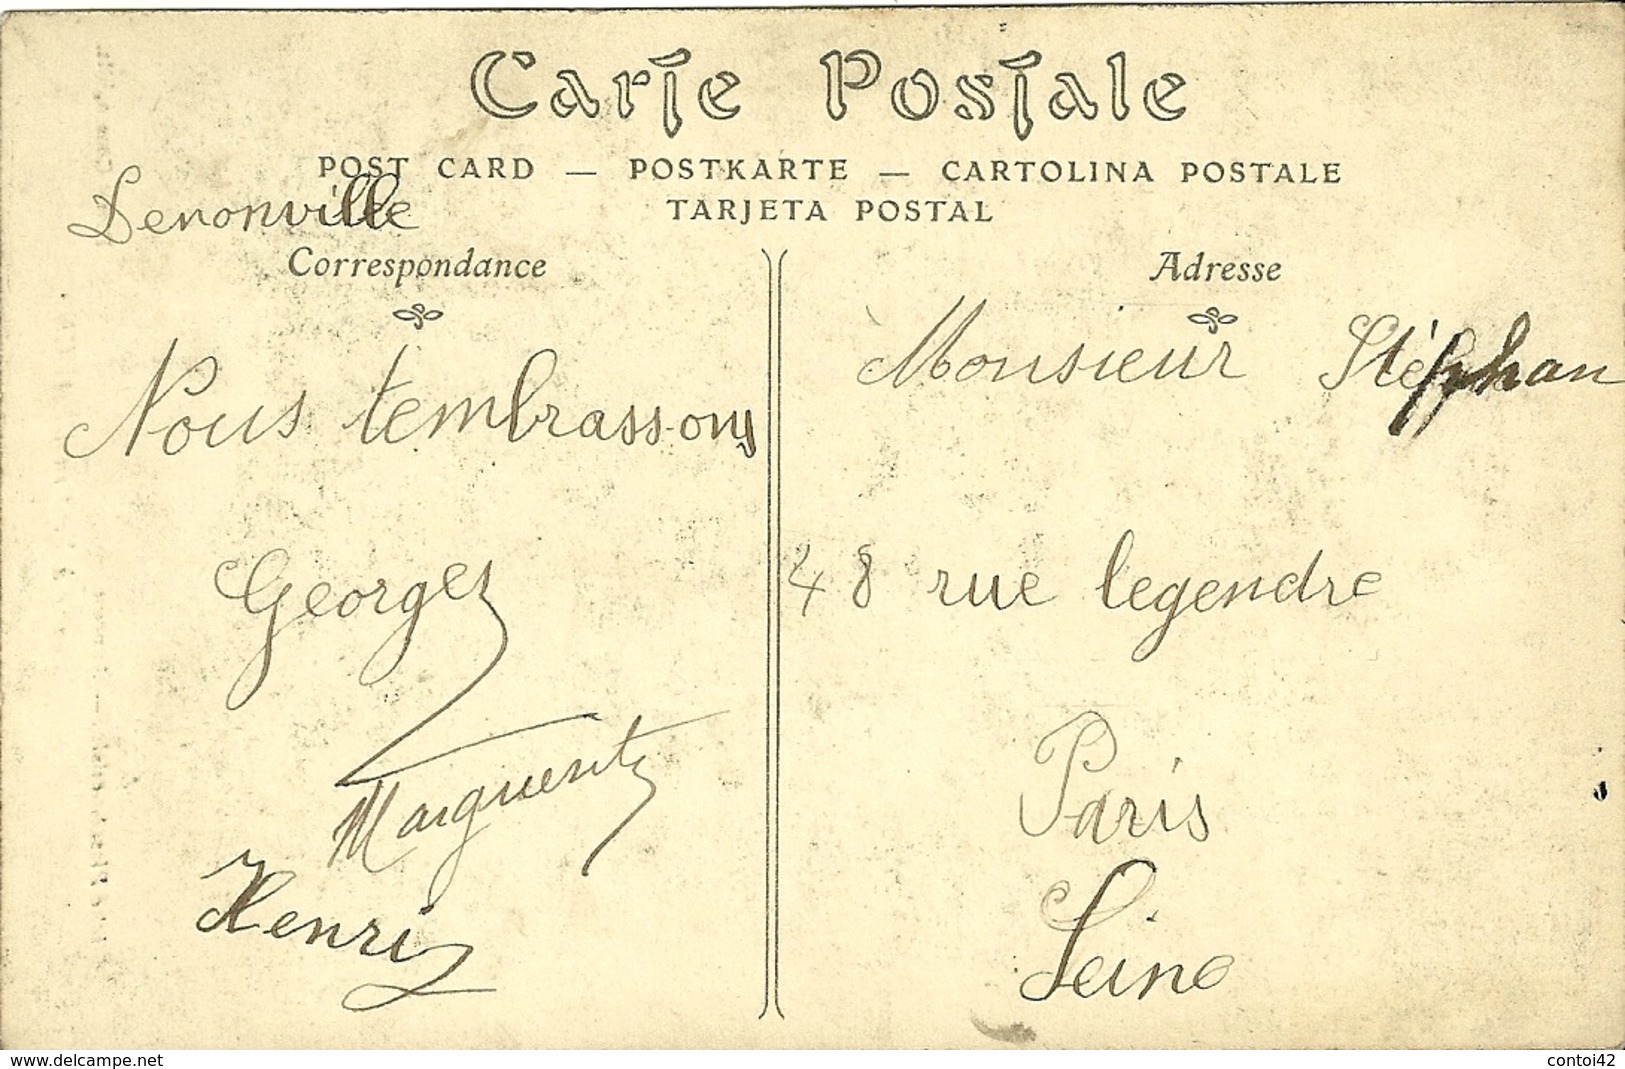 Carte Postale
POST CARD — POSTKARTE — CARTOLINA POSTALE
TARJETA POSTAL
Denonville
Correspondance
Nous tembrassons
Georges
Marguerite
Henri
Adresse
Monsieur Stéphan
48 rue legendre
Paris
Seine
www.delcampe.net
contoi42